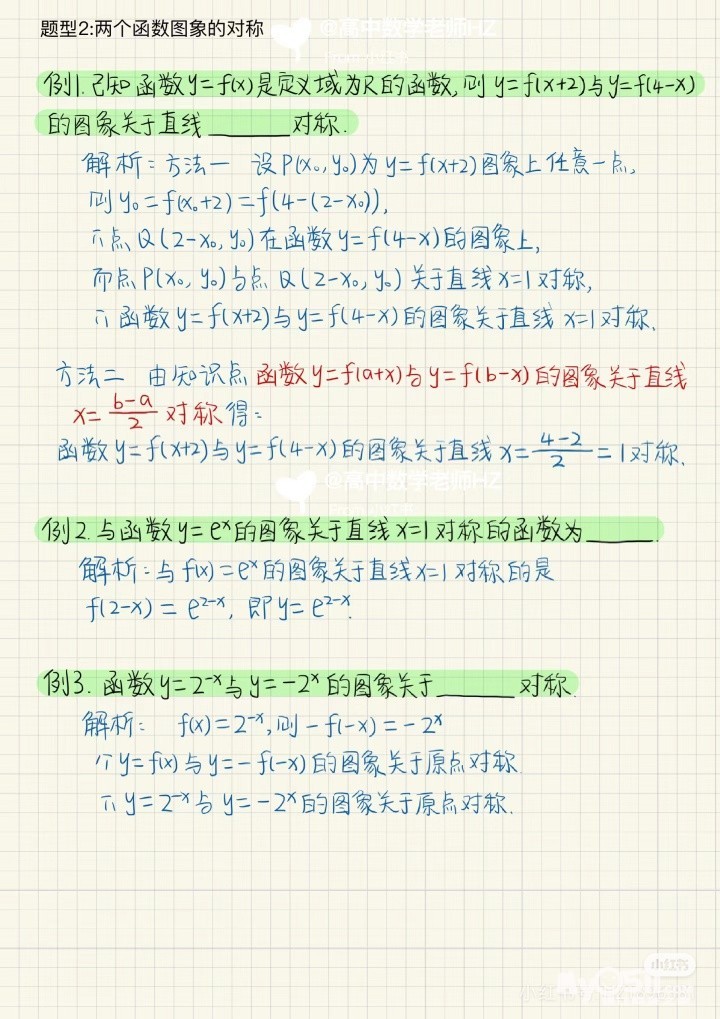 题型2:两个函数图象的对称
@高中数学老师HZ
例1.已知函数y=f(x)是定义域为R的函数,则 y=f(x+2)与y=f(4-x)
的图象关于直线______对称.
解析:方法一 设P(x₀,y₀)为y=f(x+2)图象上任意一点,
则y₀=f(x₀+2)=f(4-(2-x₀)),
∴点Q(2-x₀,y₀)在函数y=f(4-x)的图象上,
而点P(x₀,y₀)与点Q(2-x₀,y₀)关于直线x=1对称,
∴函数y=f(x+2)与y=f(4-x)的图象关于直线 x=1对称.
方法二 由知识点 函数y=f(a+x)与y=f(b-x)的图象关于直线
x=(b-a)/2 对称得:
函数y=f(x+2)与y=f(4-x)的图象关于直线x=(4-2)/2=1对称.
@高中数学老师HZ
例2.与函数y=eˣ的图象关于直线x=1对称的函数为______.
解析:与f(x)=eˣ的图象关于直线x=1对称的是
f(2-x)=e²⁻ˣ, 即y=e²⁻ˣ.
例3.函数y=2⁻ˣ与y=-2ˣ的图象关于______对称.
解析: f(x)=2⁻ˣ,则-f(-x)=-2ˣ
∵y=f(x)与y=-f(-x)的图象关于原点对称.
∴y=2⁻ˣ与y=-2ˣ的图象关于原点对称.
小红书